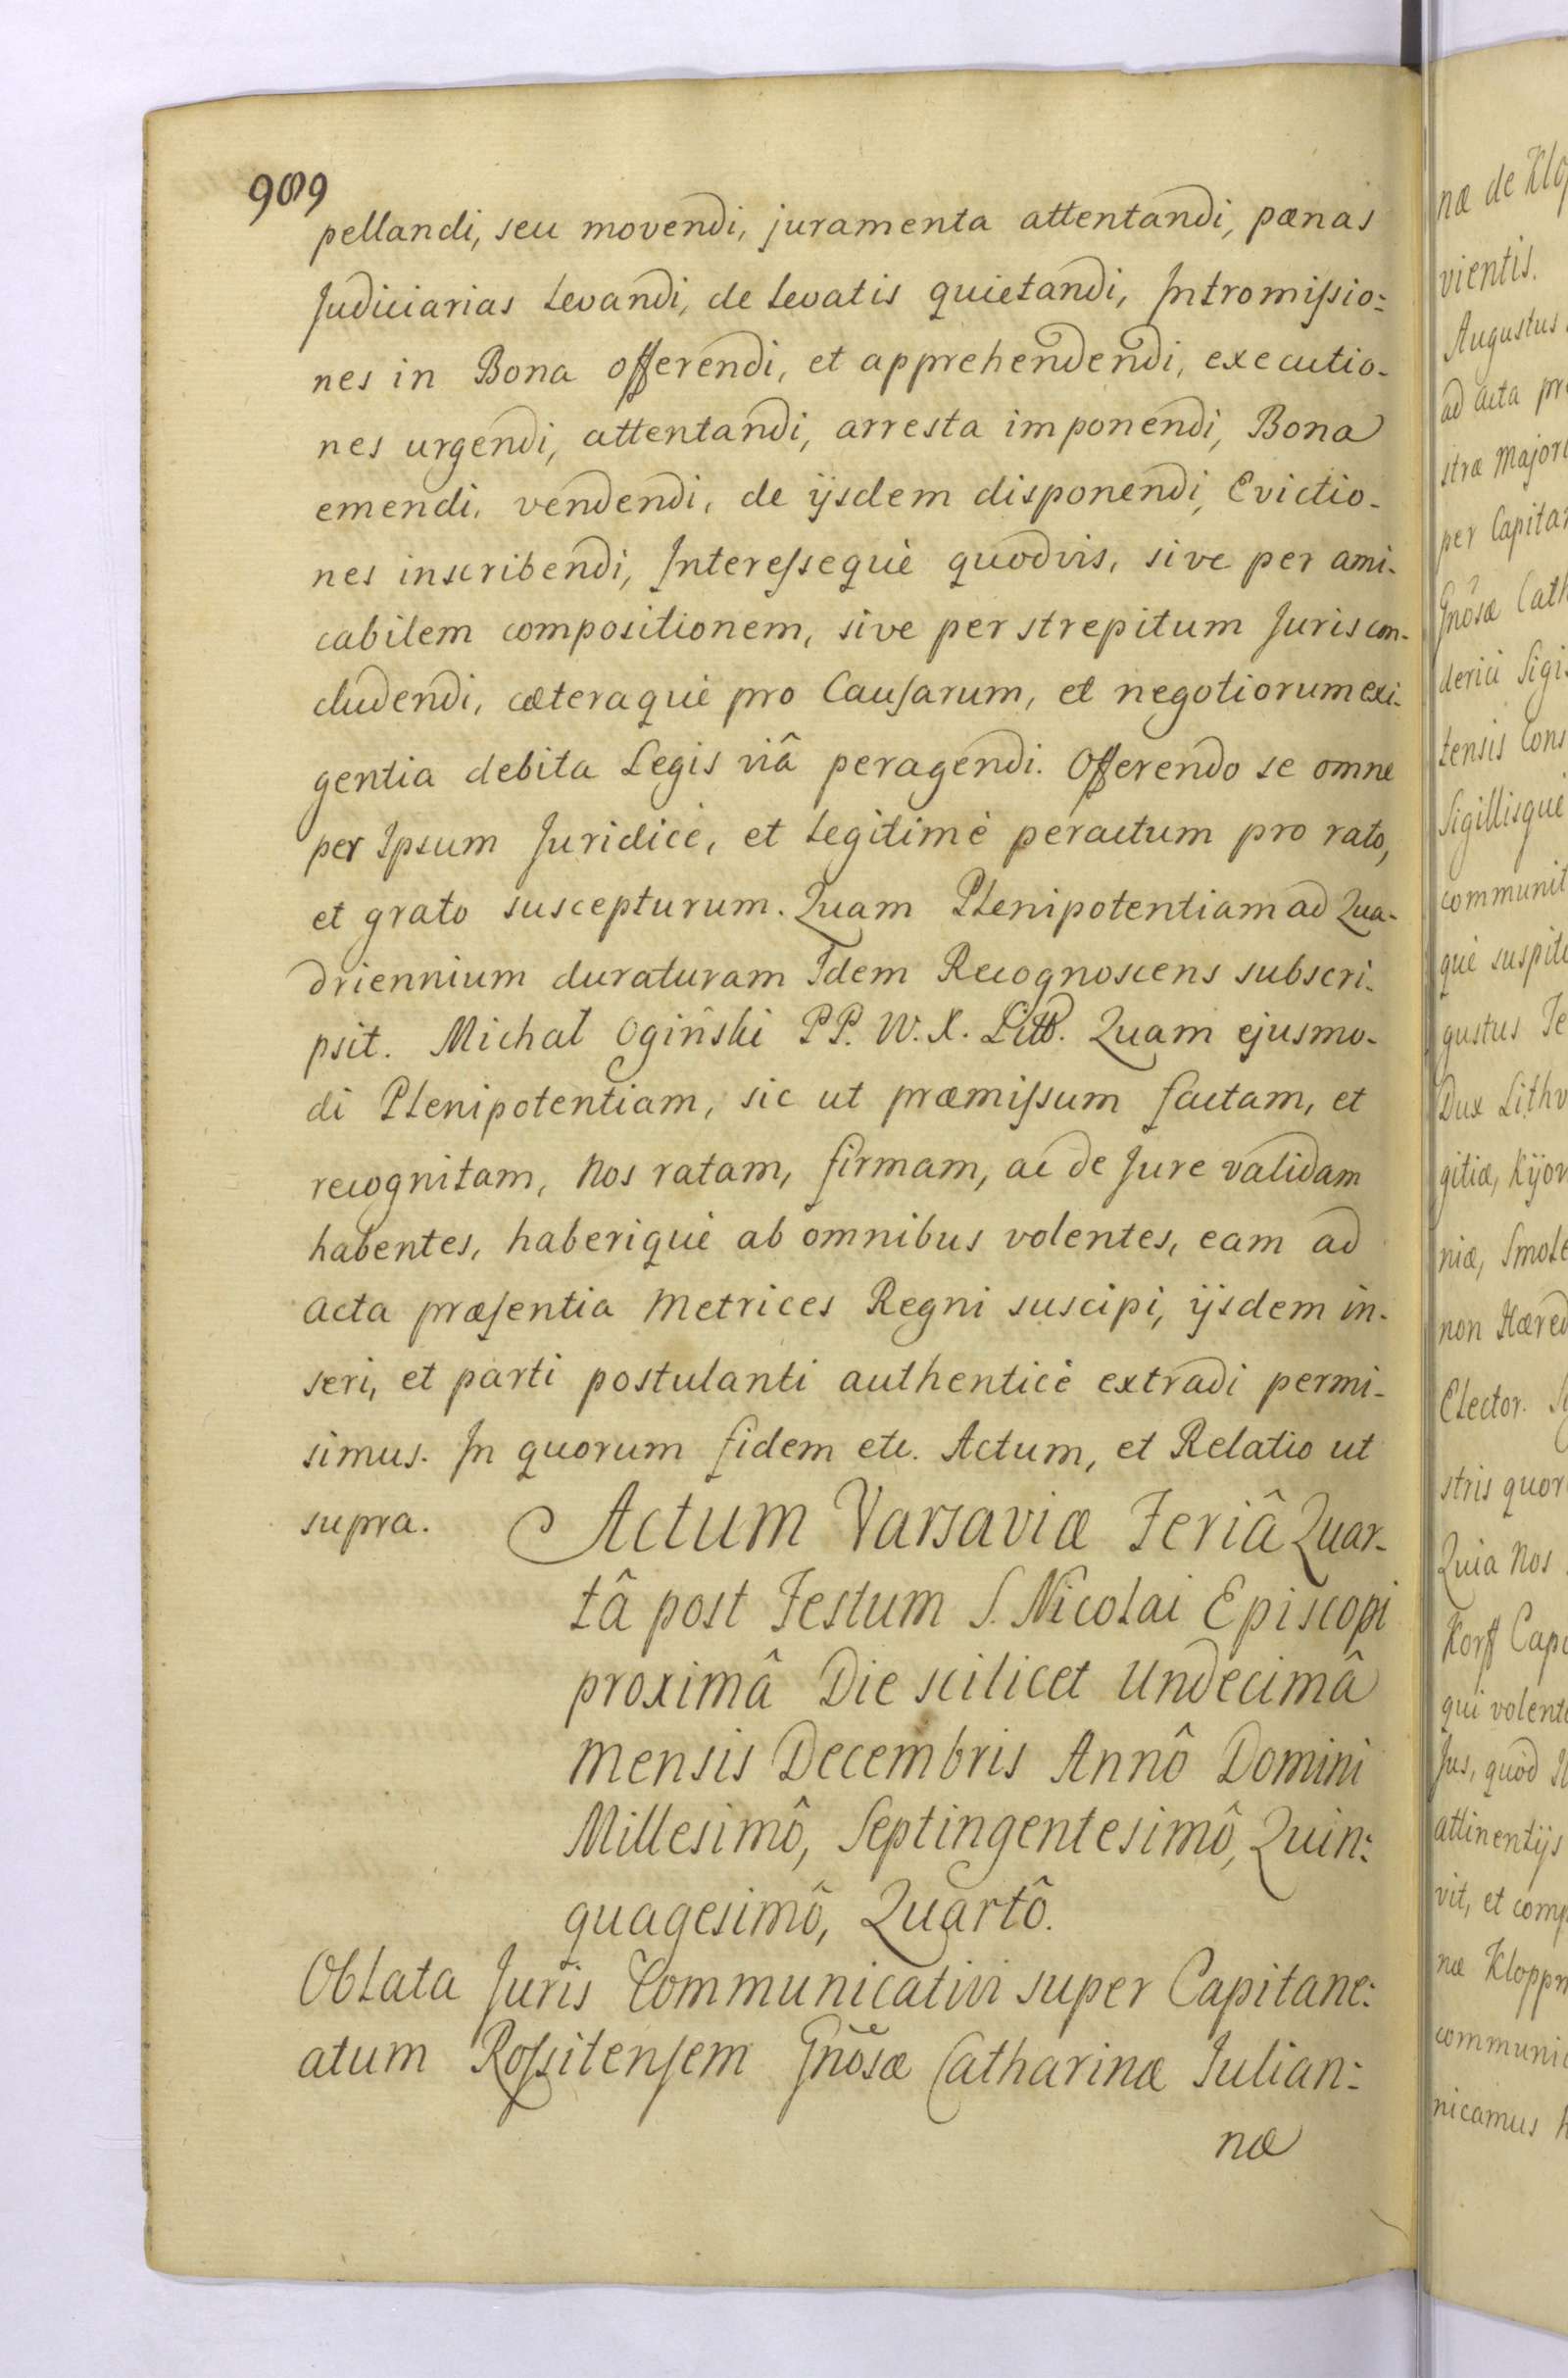 909
pellandi, seu movendi, juramenta attentandi, pænas
Judiciarias levandi, de levatis quietandi, Intromissio:
nes in Bona offerendi, et apprehendendi, executio-
nes urgendi, attentandi, arresta imponendi, Bona
emendi, vendendi, de ijsdem disponendi, Evictio-
nes inscribendi, Interessequè quodvis, sive per ami-
cabilem compositionem, sive per strepitum Juris con-
cludendi, cæteraquè pro Causarum, et negotiorum exi-
gentia debita Legis viâ peragendi. Offerendo se omne
per Ipsum Juridicè, et legitimè peractum pro rato,
et grato suscepturum. Quam Plenipotentiam ad Qua-
driennium duraturam Idem Recognoscens subscri-
psit. Michał Ogiński PP. W. X. Litt. Quam ejusmo-
di Plenipotentiam, sic ut præmissum factam, et
recognitam, Nos ratam, firmam, ac de Jure validam
habentes, haberiquè ab omnibus volentes, eam ad
acta præsentia Metrices Regni suscipi, ijsdem in-
seri, et parti postulanti authenticè extradi permi-
simus. In quorum fidem etc. Actum, et Relatio ut
supra. Actum Varsaviæ Feriâ Quar-
tâ post Festum S. Nicolai Episcopi
proximâ Die scilicet Undecimâ
Mensis Decembris Annô Domini
Millesimô, Septingentesimô, Quin:
quagesimô, Quartô.
Oblata Juris Communicativi super Capitane:
atum Rossitensem Gnosæ Catharinæ Julian:
næ
næ de
vientis.
Augustus
ad acta
stræ Majori
per
Gnosæ
derici
tensis
Sigillisquè
què
gustus
Dux
gitiæ,
niæ,
non
Elector.
stris
Quia Nos
Korff
qui
Jus, quod
attinentijs
vit, et
næ
nicamus